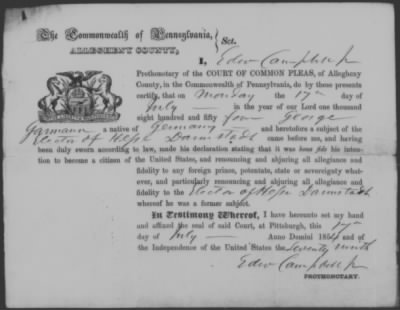 The Commonwealth of Pennsylvania,
ALLEGHENY COUNTY,
} Sct.
I, Edw Campbell Jr
Prothonotary of the COURT OF COMMON PLEAS, of Allegheny
County, in the Commonwealth of Pennsylvania, do by these presents
certify, that on Monday the 17th day of
July in the year of our Lord one thousand
eight hundred and fifty four George
Garmann a native of Germany and heretofore a subject of the
Elector of Hesse Darmstadt came before me, and having
been duly sworn according to law, made his declaration stating that it was bona fide his inten-
tion to become a citizen of the United States, and renouncing and abjuring all allegiance and
fidelity to any foreign prince, potentate, state or sovereignty what-
ever, and particularly renouncing and abjuring all allegiance and
fidelity to the Elector of Hesse Darmstadt
whereof he was a former subject.
In Testimony Whereof, I have hereunto set my hand
and affixed the seal of said Court, at Pittsburgh, this 17th
day of July Anno Domini 1854 and of
the Independence of the United States the seventy ninth
Edw Campbell Jr
PROTHONOTARY.